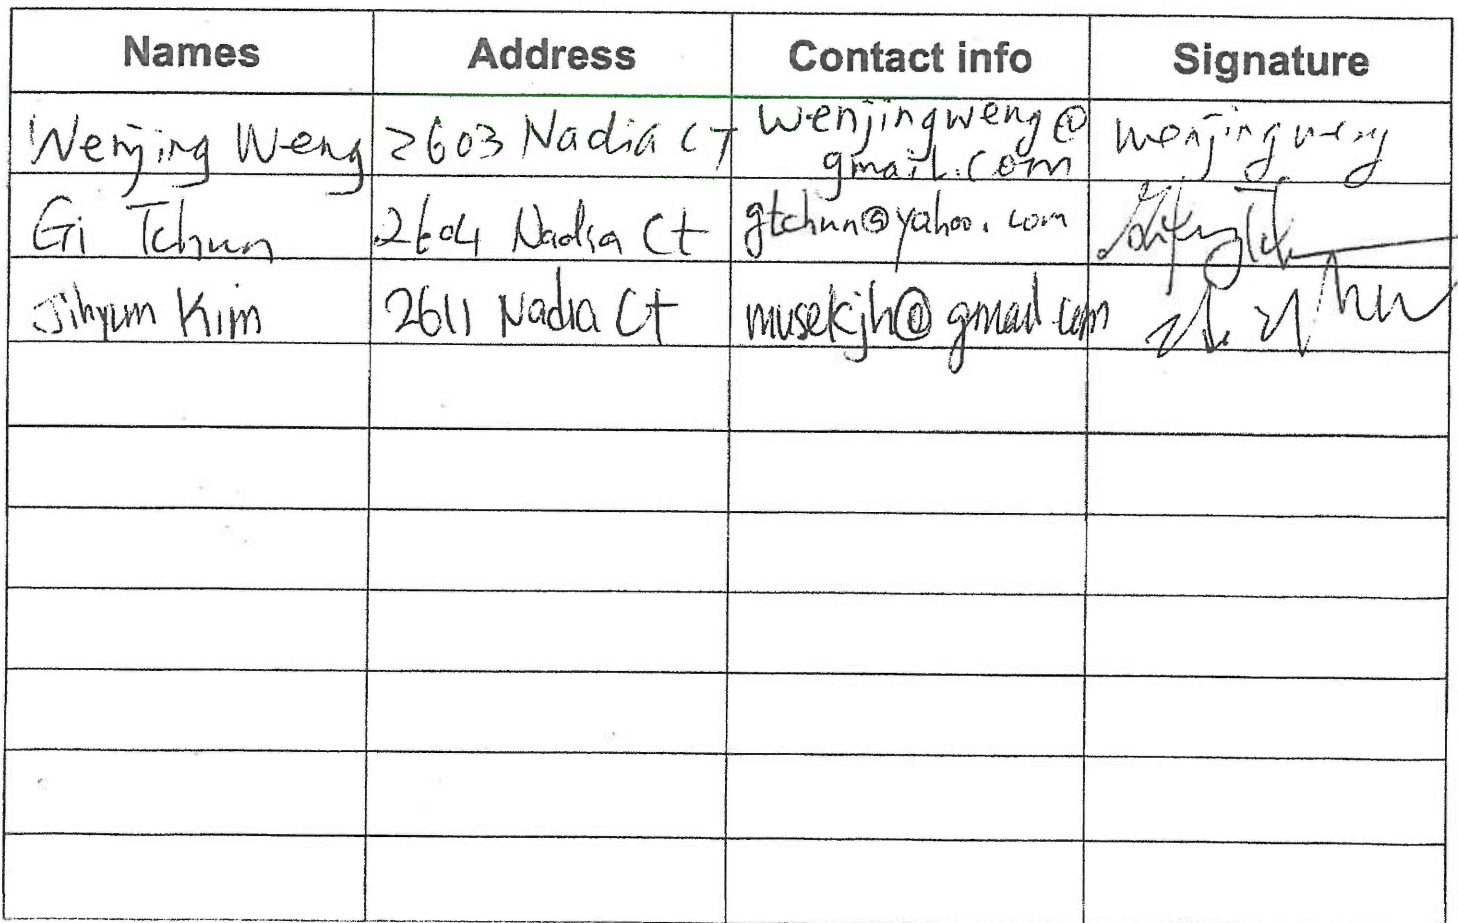 Names Address Contact info Signature
Wenjing Weng 2603 Nadia CT wenjingweng@
gmail.com wenjingweng
Gi Tchun 2604 Nadia Ct gtchun@yahoo.com
Jihyun Kim 2611 Nadia Ct musekjh@gmail.com